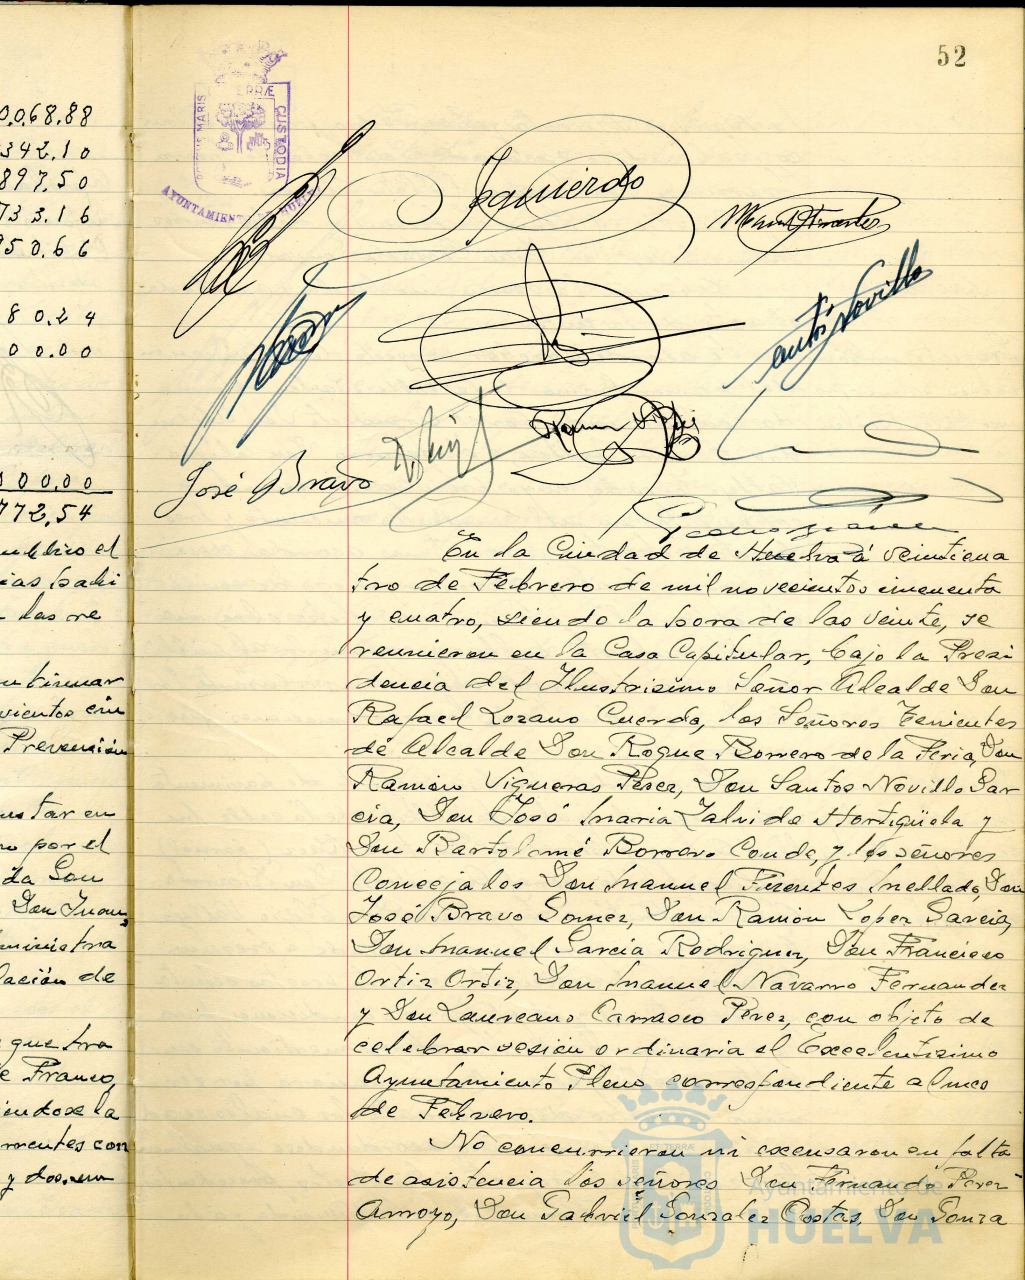 52
0.068.88
342.10
897.50
733.16
950.66
80.24
00.00
000.00
772.54
público el
las re
tinuar
vientos cin
Prevención
tar en
por el
da Don
Don Juan
ministra
lación de
que tra
e Franco,
iendose la
mentes con
y dos, en
PORTUS MARIS ET TERRÆ CUSTODIA
AYUNTAMIENTO DE HUELVA
Izquierdo
Manuel Fuentes
Santos Novillo
José Bravo
En la Ciudad de Huelva á veinticua
tro de Febrero de mil novecientos cincuenta
y cuatro, siendo la hora de las veinte, se
reunieron en la Casa Capitular, bajo la Presi
dencia del Ilustrisimo Señor Alcalde Don
Rafael Lozano Cuerda, los Señores Tenientes
de Alcalde Don Roque Borrero de la Feria, Don
Ramón Vigueras Pérez, Don Santos Novillo Gar
cia, Don José Maria Zalvide Hortigüela y
Don Bartolomé Borrero Conde, y los señores
Concejales Don Manuel Fuentes Mellado, Don
José Bravo Gomez, Don Ramón Lopez Garcia,
Don Manuel Garcia Rodriguez, Don Francisco
Ortiz Ortiz, Don Manuel Navarro Fernandez
y Don Laureano Carrasco Pérez, con objeto de
celebrar sesión ordinaria el Excelentisimo
Ayuntamiento Pleno correspondiente al mes
de Febrero.
No concurrieron ni excusaron en falta
de asistencia los señores Don Fernando Perez
Arroyo, Don Gabriel Gonzalez Costas, Don Gonza
Ayuntamiento de
HUELVA